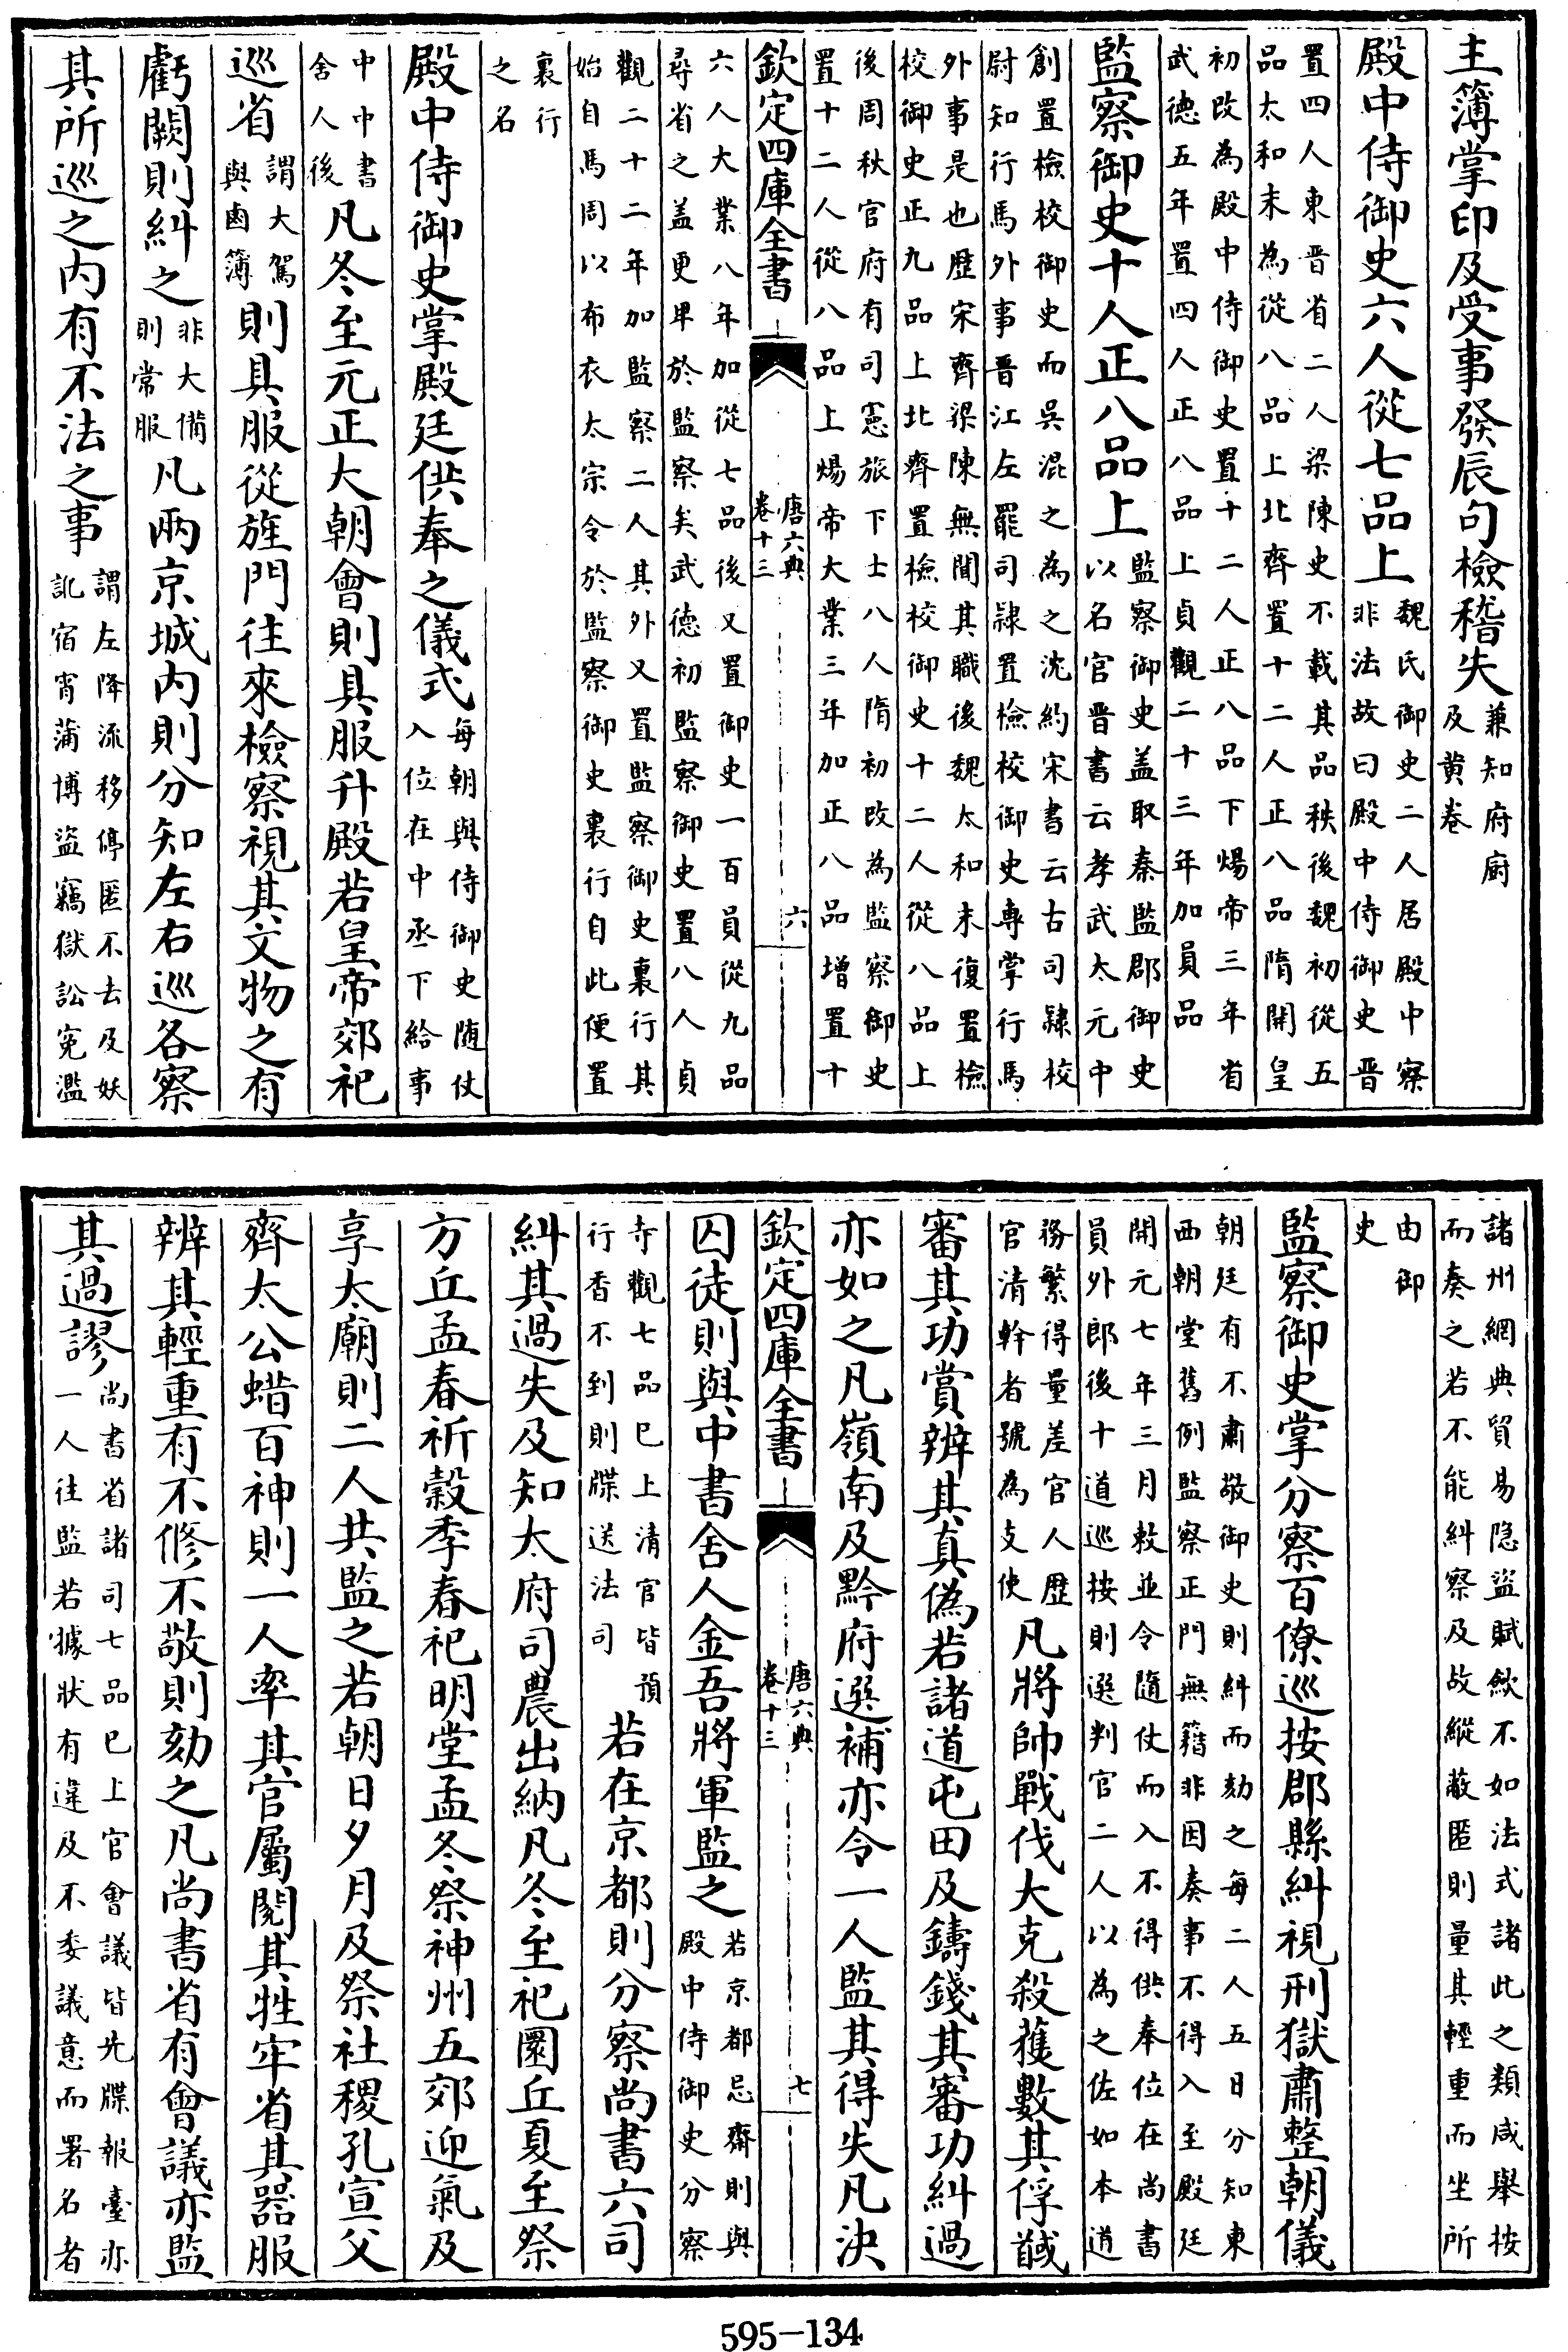 主簿掌印及受事發辰句檢稽失兼知府廚及黄卷
殿中侍御史六人從七品上魏氏御史二人居殿中察非法故曰殿中侍御史晉
置四人東晋省二人梁陳史不載其品秩後魏初從五品太和末為從八品上北齊置十二人正八品隋開皇
初改為殿中侍御史置十二人正八品下煬帝三年省武德五年置四人正八品上貞觀二十三年加員品
監察御史十人正八品上監察御史盖取秦監郡御史以名官晋書云孝武太元中
創置檢校御史而吳混之為之沈約宋書云古司隸校尉知行馬外事晋江左罷司隸置檢校御史專掌行馬
外事是也歴宋齊梁陳無聞其職後魏太和末復置檢校御史正九品上北齊置檢校御史十二人從八品上
後周秋官府有司憲旅下士八人隋初改為監察御史置十二人從八品上煬帝大業三年加正八品增置十
欽定四庫全書
唐六典
卷十三
六
六人大業八年加從七品後又置御史一百員從九品尋省之盖更卑於監察矣武德初監察御史置八人貞
觀二十二年加監察二人其外又置監察御史裏行其始自馬周以布衣太宗令於監察御史裏行自此便置
裏行之名
殿中侍御史掌殿廷供奉之儀式每朝與侍御史随仗入位在中丞下給事
中中書舍人後凡冬至元正大朝會則具服升殿若皇帝郊祀
巡省謂大駕與鹵簿則具服從旌門往來檢察視其文物之有
虧闕則糾之非大備則常服凡兩京城内則分知左右巡各察
其所巡之内有不法之事謂左降流移停匿不去及妖訛宿宵蒲博盜竊獄訟寃濫
諸州綱典貿易隐盜賦斂不如法式諸此之類咸舉按而奏之若不能糾察及故縱蔽匿則量其輕重而坐所
由御史
監察御史掌分察百僚巡按郡縣糾視刑獄肅整朝儀
朝廷有不肅敬御史則糾而劾之每二人五日分知東西朝堂舊例監察正門無籍非因奏事不得入至殿廷
開元七年三月敕並令隨仗而入不得供奉位在尚書員外郎後十道巡按則選判官二人以為之佐如本道
務繁得量差官人歴官清幹者號為支使凡將帥戰伐大克殺獲數其俘馘
審其功賞辨其真偽若諸道屯田及鑄錢其審功糾過
亦如之凡嶺南及黔府選補亦令一人監其得失凡決
欽定四庫全書
唐六典
卷十三
七
囚徒則與中書舍人金吾將軍監之若京都忌齋則與殿中侍御史分察
寺觀七品已上清官皆預行香不到則牒送法司若在京都則分察尚書六司
糾其過失及知太府司農出納凡冬至祀圜丘夏至祭
方丘孟春祈穀季春祀明堂孟冬祭神州五郊迎氣及
享太廟則二人共監之若朝日夕月及祭社稷孔宣父
齊太公蜡百神則一人率其官屬閱其牲牢省其器服
辨其輕重有不修不敬則劾之凡尚書省有會議亦監
其過謬尚書省諸司七品已上官會議皆先牒報臺亦一人往監若據狀有違及不委議意而署名者
595-134